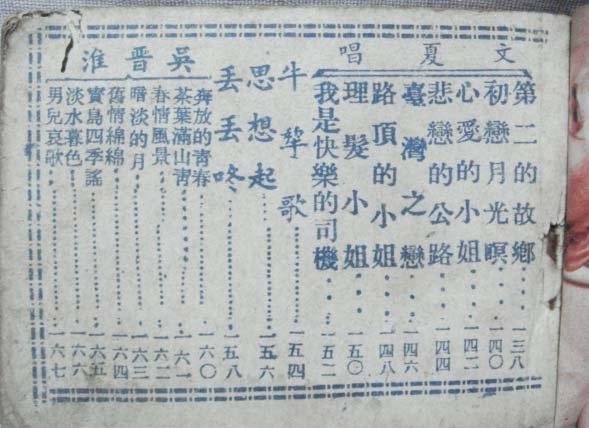 文夏唱
第二的故鄉……一三八
初戀月光暝……一四〇
心愛的小姐……一四二
悲戀的公路……一四四
臺灣之戀……一四六
路頂的小姐……一四八
理髮小姐……一五〇
我是快樂的司機……一五二
牛犂歌……一五四
思想起……一五六
丢丢咚……一五八
吳晋淮
奔放的青春……一六〇
茶葉滿山青……一六一
春情風景……一六二
暗淡的月……一六三
舊情綿綿……一六四
寳島四季謠……一六五
淡水暮色……一六六
男兒哀歌……一六七